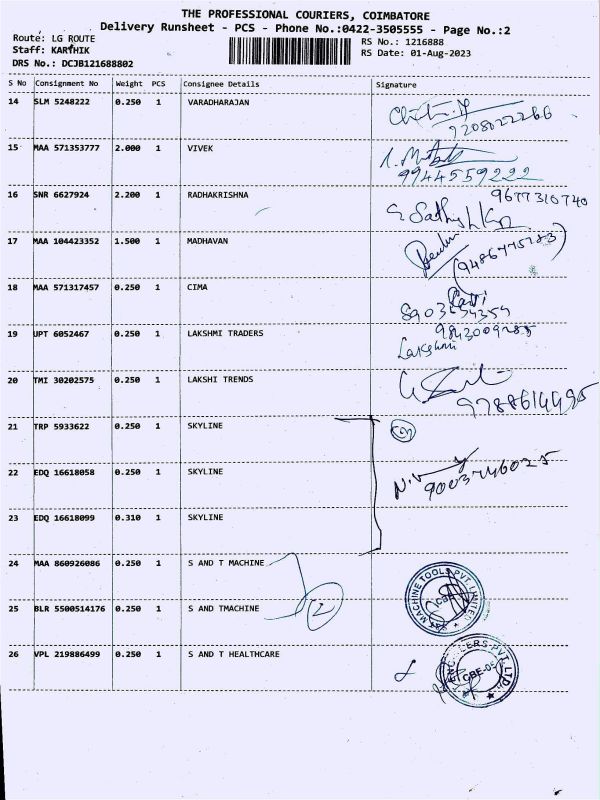 THE PROFESSIONAL COURIERS, COIMBATORE
Delivery Runsheet - PCS - Phone No.:0422-3505555 - Page No.:2
Route: LG ROUTE
Staff: KARTHIK
DRS No.: DCJB121688802
RS No.: 1216888
RS Date: 01-Aug-2023
S No Consignment No Weight PCS Consignee Details Signature
14 SLM 5248222 0.250 1 VARADHARAJAN
9208022266
15 MAA 571353777 2.000 1 VIVEK
9944559222
16 SNR 6627924 2.200 1 RADHAKRISHNA 9677310740
17 MAA 104423352 1.500 1 MADHAVAN
18 MAA 571317457 0.250 1 CIMA
19 UPT 6052467 0.250 1 LAKSHMI TRADERS
Lakshmi
20 TMI 30202575 0.250 1 LAKSHI TRENDS
9788614495
21 TRP 5933622 0.250 1 SKYLINE
22 EDQ 16618058 0.250 1 SKYLINE
9003746025
23 EDQ 16618099 0.310 1 SKYLINE
24 MAA 860926086 0.250 1 S AND T MACHINE
MACHINE TOOLS PVT. LIMITED
25 BLR 5500514176 0.250 1 S AND TMACHINE
2
26 VPL 219886499 0.250 1 S AND T HEALTHCARE
PVT. LTD